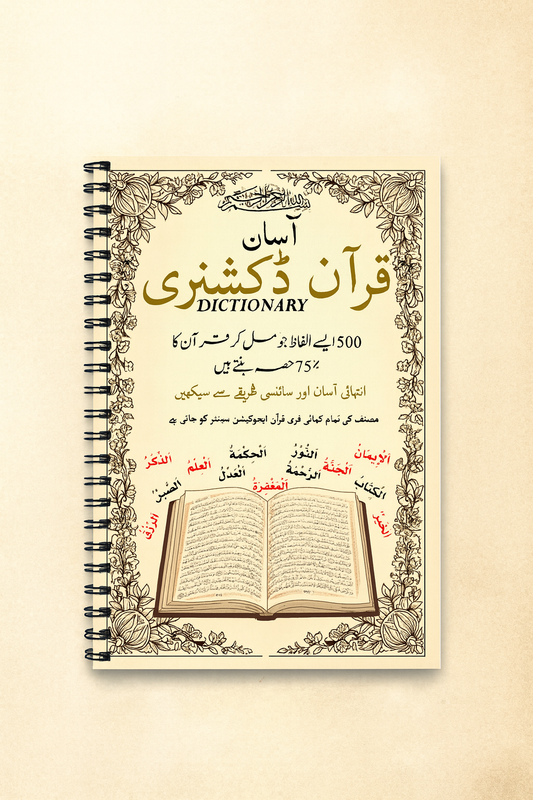 بسم الله الرحمن الرحيم
آسان
قرآن ڈکشنری
DICTIONARY
500 ایسے الفاظ جو مل کر قرآن کا
75٪ حصہ بنتے ہیں
انتہائی آسان اور سائنسی طریقے سے سیکھیں
مصنف کی تمام کمائی فری قرآن ایجوکیشن سینٹر کو جاتی ہے
اَلْإِيمَانُ
اَلنُّوْرُ
اَلْحِكْمَةُ
اَلذِّكْرُ
اَلْجَنَّةُ
اَلرَّحْمَةُ
اَلْعَدْلُ
اَلْعِلْمُ
اَلْكِتَابُ
اَلْمَغْفِرَةُ
اَلصَّبْرُ
اَلْخَيْرُ
اَلرِّزْقُ